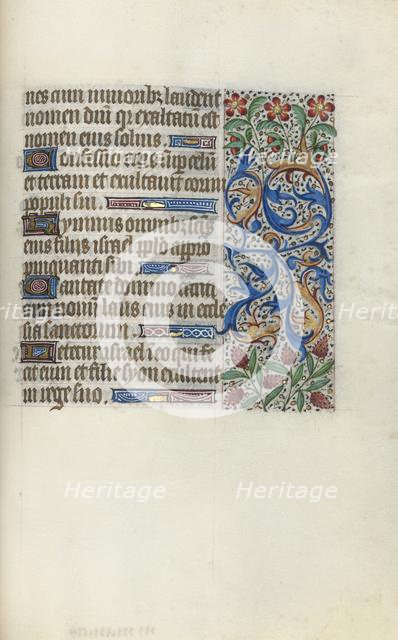 nes cum iunioribz laudent
nomen dm̄ qr exaltatū est
nomen eius solius.
Confessio eius sup celū
et terram et exaltauit cornu
populi sui.
Hymnus omnibz scīs
eius filiis israel pplo appro
pinquanti sibi.
Cantate domino canti
cū nouū laus eius in eccle
sia sanctorum.
Letetur israel in eo qui fe
cit eum et filie syon exultent
in rege suo.
Heritage
Heritage
Heritage
Heritage
Heritage
Heritage